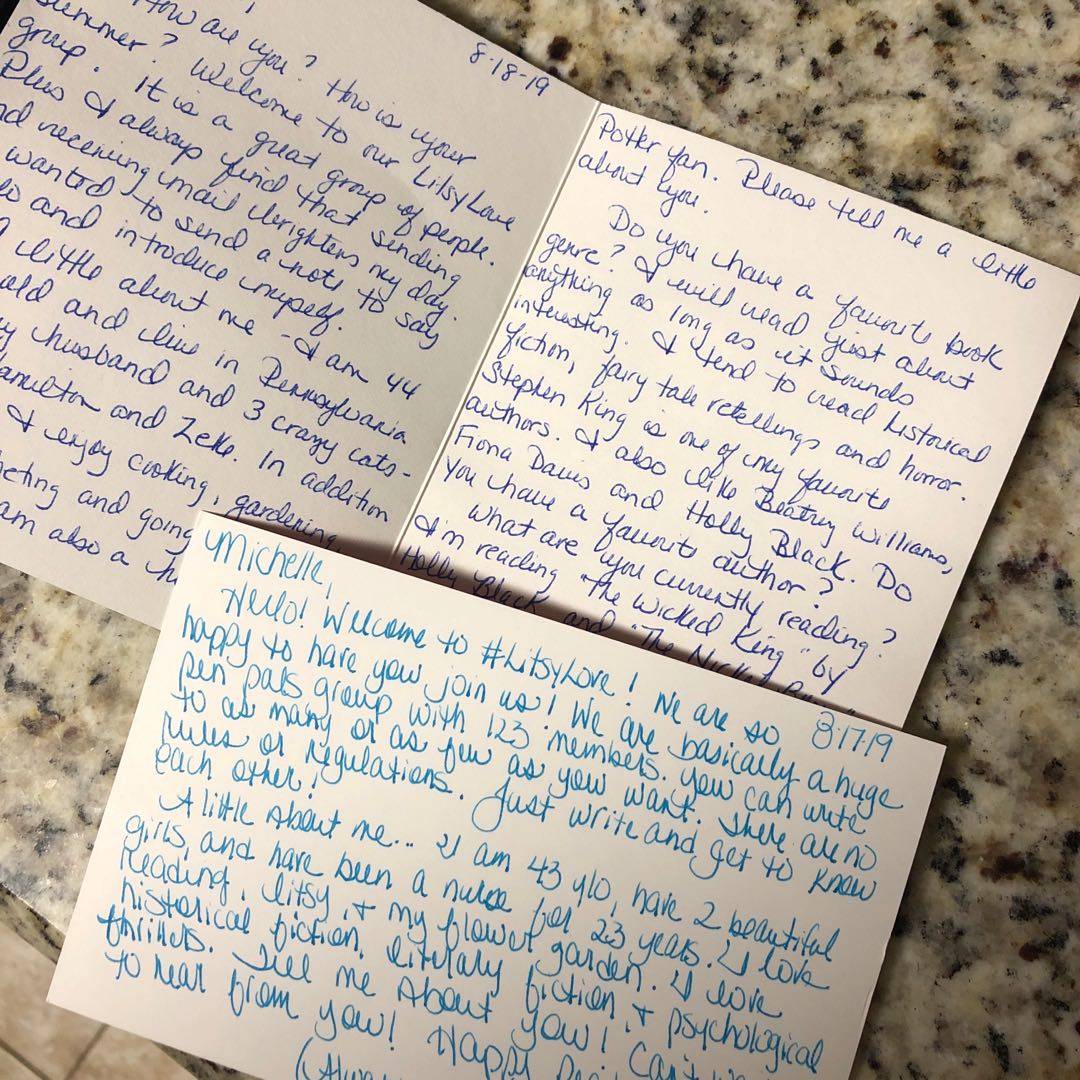 How are you? How is your
summer? Welcome to our LitsyLove
group. It is a great group of people.
Plus I always find that sending
nd receiving mail brightens my day.
wanted to send a note to say
lo and introduce myself.
A little about me - I am 44
old and live in Pennsylvania
y husband and 3 crazy cats-
amilton and Zelle. In addition
I enjoy cooking, gardening,
eting and going
am also a hu
8-18-19
Potter fan. Please tell me a little
about you.
Do you have a favorite book
genre? I will read just about
anything as long as it sounds
interesting. I tend to read historical
fiction, fairy tale retellings and horror.
Stephen King is one of my favorite
authors. I also like Beatriz Williams,
Fiona Davis and Holly Black. Do
you have a favorite author?
What are you currently reading?
I'm reading "The Wicked King" by
Holly Black and "The Nickel
Michelle,
8-17-19
Hello! Welcome to #LitsyLove! We are so
happy to have you join us! We are basically a huge
pen pals group with 123 members. You can write
to as many or as few as you want. There are no
rules or regulations. Just write and get to know
each other!
A little about me... I am 43 y/o, have 2 beautiful
girls, and have been a nurse for 23 years. I love
reading, litsy, & my flower garden. I love
historical fiction, literary fiction, & psychological
thrillers. Tell me about you! Can't
to hear from you! Happy
(Alway